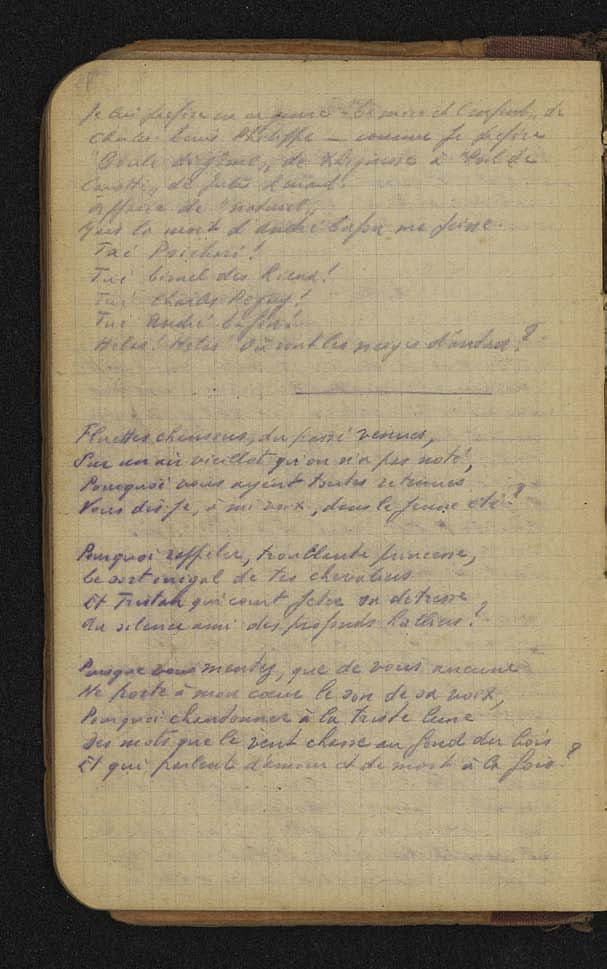 Je lui préfère un en genre "la mère et l'enfant" de
Charles-Louis Philippe — comme je préfère
"Boule de gêne", de à "Poil de
Carotte", de Jules Renard.
Affaire de "naturel",
Mais la mort d'André Lafon me peine.
Tué Psichari!
Tué Lionel des Rieux!
Tué Charles Péguy!
Tué André Lafon!
Hélas! Hélas! Où sont les neiges d'antan?
Fluettes chansons, du passé venues,
Sur un air vieillot qu'on n'a pas noté,
Pourquoi vous ayant toutes retenues
Vous dis-je, à mi voix, dans le jeune été?
Pourquoi rappeler, troublante princesse,
Le sort inégal de tes chevaliers
Et Tristan qui court jeter sa détresse
Au silence ami des profonds halliers?
Puisque vous mentez, que de vous aucune
Ne porte à mon cœur le son de sa voix,
Pourquoi chantonner à la triste lune
Des mots que le vent chasse au fond du bois
Et qui parlent d'amour et de mort à la fois?